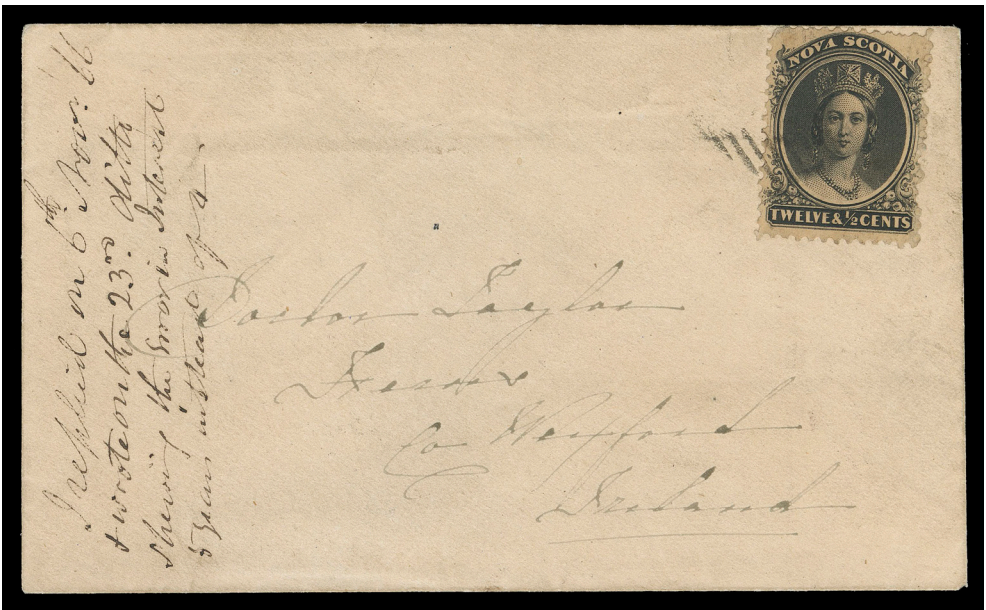 NOVA SCOTIA
TWELVE & ½ CENTS
Doctor Taylor
Ferns
Co Wexford
Ireland
I replied on 6th Novr. 66
& wrote on the 23rd. ditto
shewing the error in Interest
5 years instead of 4